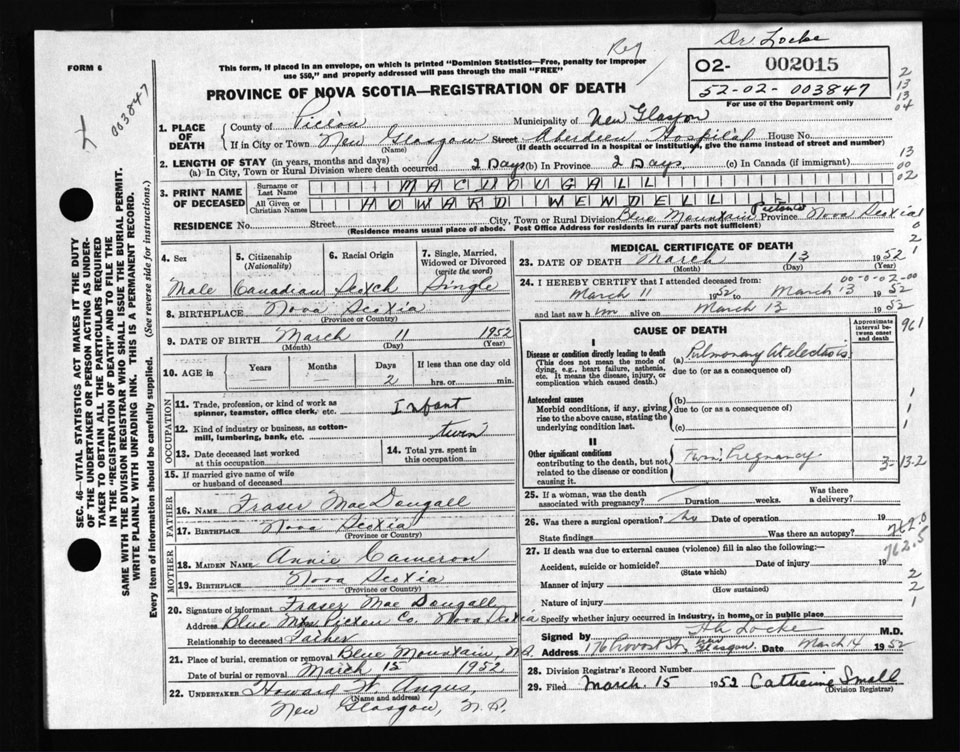 Dr Locke
Reg
FORM 6
This form, if placed in an envelope, on which is printed "Dominion Statistics—Free, penalty for improper
use $50," and properly addressed will pass through the mail "FREE"
02- 002015
52-02-003847
For use of the Department only
003847
PROVINCE OF NOVA SCOTIA—REGISTRATION OF DEATH
1. PLACE OF DEATH
County of Pictou Municipality of New Glasgow
If in City or Town New Glasgow Street Aberdeen Hospital House No.
(Name) (If death occurred in a hospital or institution, give the name instead of street and number)
2. LENGTH OF STAY (in years, months and days)
(a) In City, Town or Rural Division where death occurred 2 Days (b) In Province 2 Days. (c) In Canada (if immigrant)
3. PRINT NAME OF DECEASED
Surname or Last Name MACDOUGALL
All Given or Christian Names HOWARD WENDELL
RESIDENCE No. Street City, Town or Rural Division Blue Mountain Pictou Co Province Nova Scotia
(Residence means usual place of abode. Post Office Address for residents in rural parts not sufficient)
2
13
13
04
13
00
02
0
2
1
SEC. 46—VITAL STATISTICS ACT MAKES IT THE DUTY
OF THE UNDERTAKER OR PERSON ACTING AS UNDER-
TAKER TO OBTAIN ALL THE PARTICULARS REQUIRED
IN THE "REGISTRATION OF DEATH" AND TO FILE THE
SAME WITH THE DIVISION REGISTRAR WHO SHALL ISSUE THE BURIAL PERMIT.
WRITE PLAINLY WITH UNFADING INK. THIS IS A PERMANENT RECORD.
Every item of information should be carefully supplied. (See reverse side for instructions.)
4. Sex
Male
5. Citizenship
(Nationality)
Canadian
6. Racial Origin
Scotch
7. Single, Married,
Widowed or Divorced
(write the word)
Single
8. BIRTHPLACE Nova Scotia
(Province or Country)
9. DATE OF BIRTH March 11 1952
(Month) (Day) (Year)
10. AGE in Years Months Days If less than one day old
— — 2 hrs. or min.
OCCUPATION
11. Trade, profession, or kind of work as
spinner, teamster, office clerk, etc. Infant
12. Kind of industry or business, as cotton-
mill, lumbering, bank, etc. twin
13. Date deceased last worked
at this occupation
14. Total yrs. spent in
this occupation
15. If married give name of wife
or husband of deceased
FATHER
16. NAME Fraser MacDougall
17. BIRTHPLACE Nova Scotia
(Province or Country)
MOTHER
18. MAIDEN NAME Annie Cameron
19. BIRTHPLACE Nova Scotia
(Province or Country)
20. Signature of informant Fraser MacDougall
Address Blue Mtn Pictou Co. Nova Scotia
Relationship to deceased Father
21. Place of burial, cremation or removal Blue Mountain, N.S.
Date of burial or removal March 15 1952
22. UNDERTAKER Howard W. Angus,
(Name and address)
New Glasgow, N.S.
MEDICAL CERTIFICATE OF DEATH
23. DATE OF DEATH March 13 1952
(Month) (Day) (Year)
00-0-02-00
24. I HEREBY CERTIFY that I attended deceased from:
March 11 1952 to March 13 1952
and last saw him alive on March 13 1952
CAUSE OF DEATH
Approximate interval between onset and death
961
I
Disease or condition directly leading to death
(This does not mean the mode of
dying, e.g., heart failure, asthenia,
etc. It means the disease, injury, or
complication which caused death.)
(a) Pulmonary Atelectasis
due to (or as a consequence of)
Antecedent causes
Morbid conditions, if any, giving
rise to the above cause, stating the
underlying condition last.
(b)
due to (or as a consequence of)
(c)
1
1
1
II
Other significant conditions
contributing to the death, but not
related to the disease or condition
causing it.
Twin Pregnancy
3-13-2
25. If a woman, was the death
associated with pregnancy? Duration weeks. Was there a delivery?
26. Was there a surgical operation? No Date of operation 19
State findings Was there an autopsy?
762.0
762.5
27. If death was due to external causes (violence) fill in also the following:—
Accident, suicide or homicide? Date of injury 19
(State which)
Manner of injury
(How sustained)
Nature of injury
Specify whether injury occurred in industry, in home, or in public place
2
2
1
Signed by Locke M.D.
Address 176 Provost St, New Glasgow. Date March 14 1952
28. Division Registrar's Record Number
29. Filed March. 15 1952 Catherine Small
(Division Registrar)